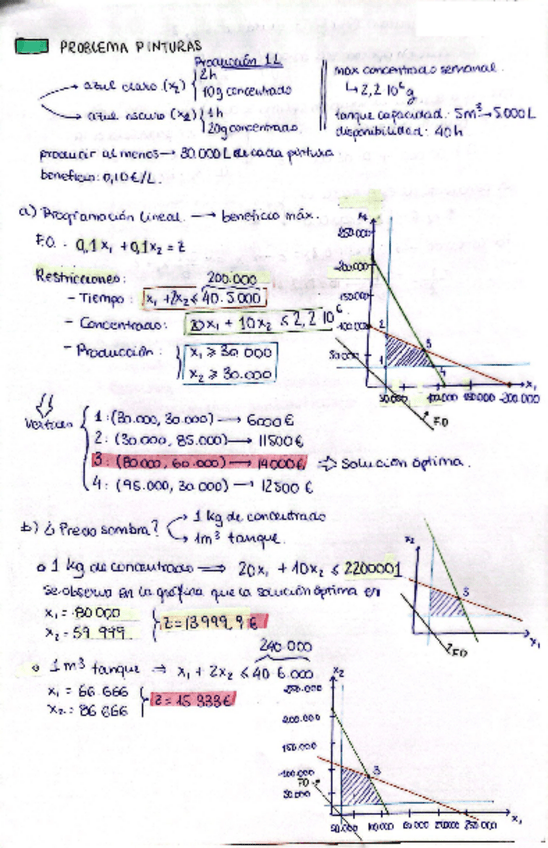 PROBLEMA PINTURAS
Producción 1L
azul claro (x₂) { 2h
10g concentrado
azul oscuro (x₁) { 1h
20g concentrado
max concentrado semanal.
↳ 2,2 10⁶ g
tanque capacidad: 5m³ → 5.000 L
disponibilidad: 40 h
producir al menos → 30.000 L de cada pintura
beneficio: 0,10 €/L.
a) Programación lineal. → beneficio máx.
F.O. - 0,1x₁ + 0,1x₂ = z
Restricciones:
200.000
- Tiempo: x₁ + 2x₂ ≤ 40.5000
- Concentrado: 20x₁ + 10x₂ ≤ 2,2 10⁶
- Producción: } x₁ ≥ 30 000
x₂ ≥ 30.000
Vértices { 1: (30.000, 30.000) → 6000 €
2: (30 000, 85.000) → 11500 €
3: (80.000, 60.000) → 14000 € ⇒ solución óptima.
4: (95.000, 30 000) → 12500 €
x₂
250.000
200.000
150.000
100.000
50.000
2
3
1
4
50.000 100.000 150.000 200.000
x₁
F.O
b) ¿Precio sombra? → 1 kg de concentrado
→ 1m³ tanque.
o 1 kg de concentrado ⇒ 20x₁ + 10x₂ ≤ 2200001
se observa en la gráfica que la solución óptima en
x₁ = 80 000
x₂ = 59 999
} z = 13999,9 €
x₂
3
x₁
F.O
240.000
o 1 m³ tanque ⇒ x₁ + 2x₂ ≤ 40 6.000
x₁ = 66 666
x₂ = 86 666
} z = 15 333 €
x₂
250.000
200.000
150.000
100.000
50.000
F.O
3
x₁